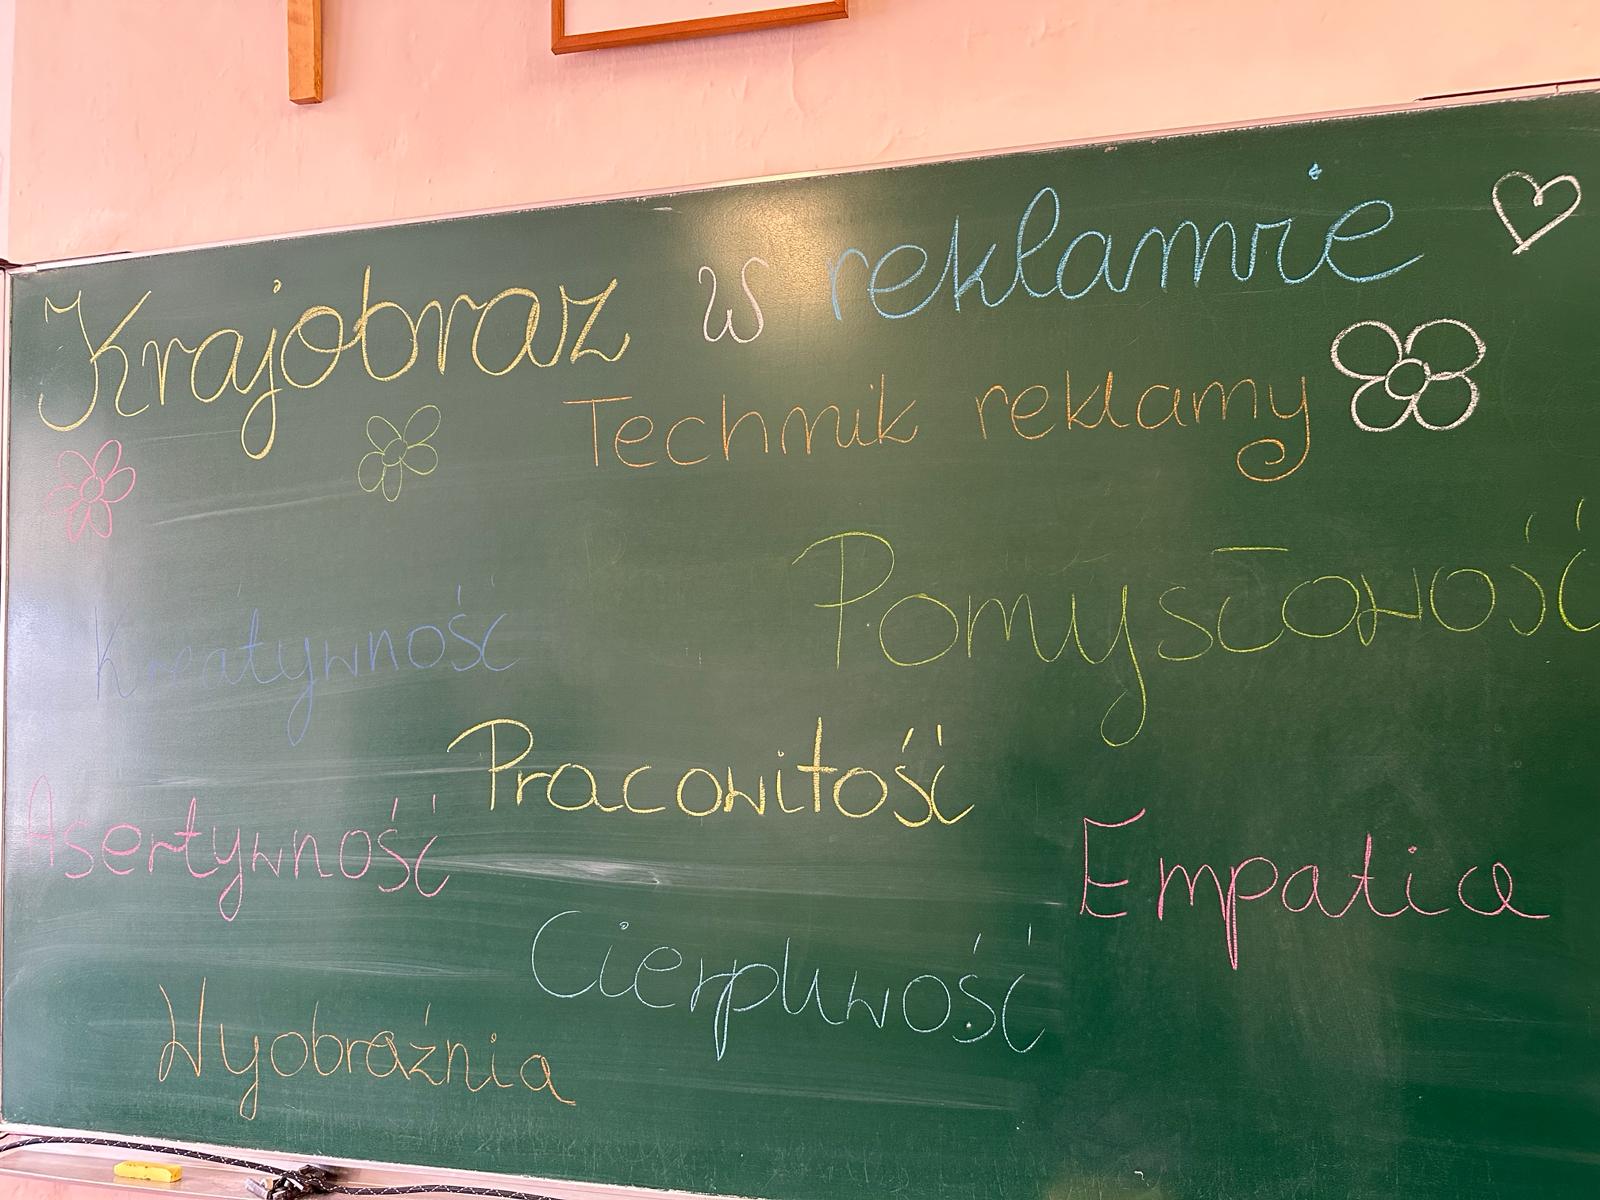 Krajobraz w reklamie
Technik reklamy
Kreatywność
Pomysłowość
Pracowitość
Asertywność
Empatia
Cierpliwość
Wyobraźnia